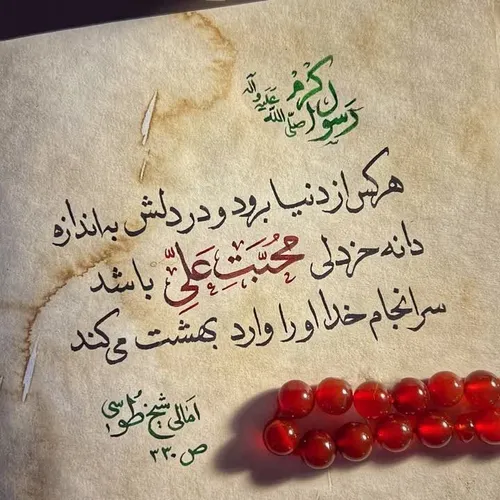 رسول اکرم صلّی الله علیه وآله
هرکس از دنیا برود و در دلش به اندازه
دانه خردلی محبّتِ عَلیِّ باشد
سرانجام خدا او را وارد بهشت می‌کند
امالی شیخ طُوسی
ص ۳۳۰